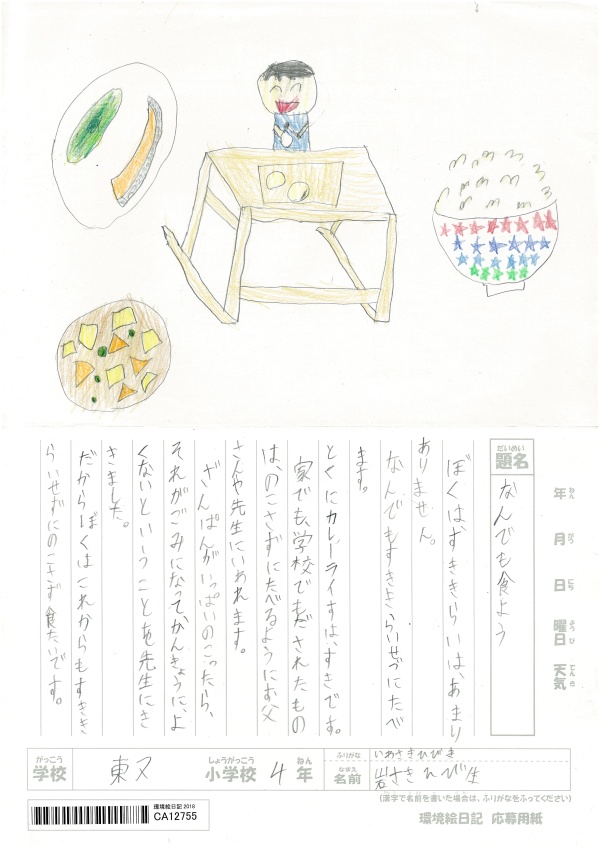 だいめい
題名
なんでも食よう
年 ねん
月 がつ
日 にち
曜日 ようび
天気 てんき
ぼくは、すききらいは、あまり
ありません。
なんでもすききらいせづにたべ
ます。
とくにカレーライすは、すきです。
家でも、学校でもだされたもの
は、のこさずにたべるようにお父
さんや先生にいわれます。
ざんぱんがいっぱいのこったら、
それがごみになってかんきょうに、よ
くないということを先生にき
きました。
だからぼくはこれからもすきき
らいせずにのこさず食たいです。
がっこう
学校
しょうがっこう
小学校
4
ねん
年
ふりがな
いわさきひびき
なまえ
名前
岩さきひび生
(漢字で名前を書いた場合は、ふりがなをふってください)
環境絵日記 2018
CA12755
環境絵日記 応募用紙